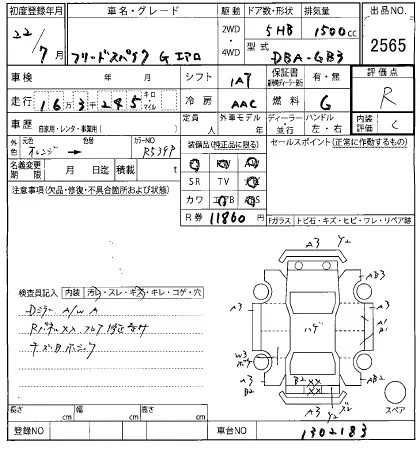 初度登録年月 車名・グレード 駆動 ドア数・形状 排気量 出品NO.
22/7月 フリードスパイク G エアロ 2WD・4WD 5HB 1500cc 2565
型式 DBA-GB3
車検 年 月 シフト IAT 保証書 有・無 評価点
走行 16万3千245 キロ・マイル 冷房 AAC 燃料 G R
車歴 自家用・レンタ・事業用( ) 定員 人 外車モデル 年 ディーラー・並行 ハンドル 左・右 内装評価 C
外色 元色 オレンジ → 色替 カラーNO R539P 装備品(純正品に限る) セールスポイント(正常に作動するもの)
名義変更期限 月 日迄 積載 t
注意事項(欠品・修復・不具合箇所および状態) SR TV
カワ
R券 11860円 Fガラス トビ石・キズ・ヒビ・ワレ・リペア跡
検査員記入 内装 汚レ・スレ・キズ・キレ・コゲ・穴
Dミラー A/W A
A3 Y2
A3 AB3
ハゲ
A3 A3
A1
W3
A3 B2 B2 XX AB2
XX
A3 Y2
スペア
長さ cm 幅 cm 高さ cm
登録NO 車台NO 1302183